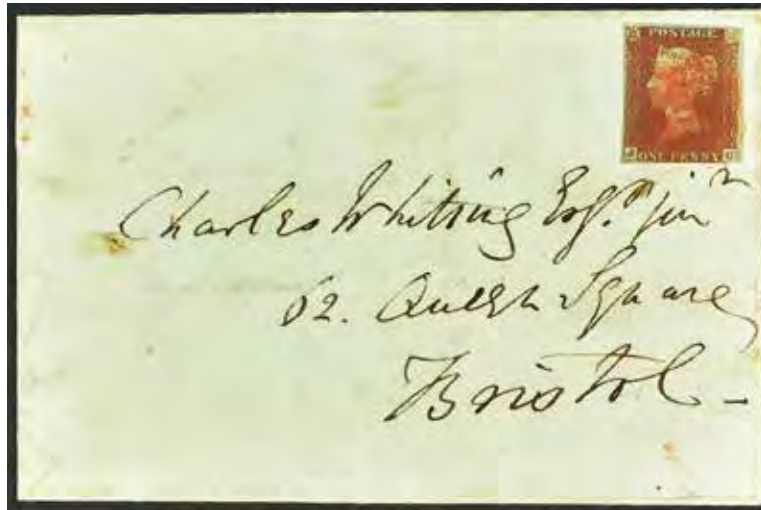 POSTAGE
ONE PENNY
Charles Whiting Esqr junr
62. Queen Square
Bristol -